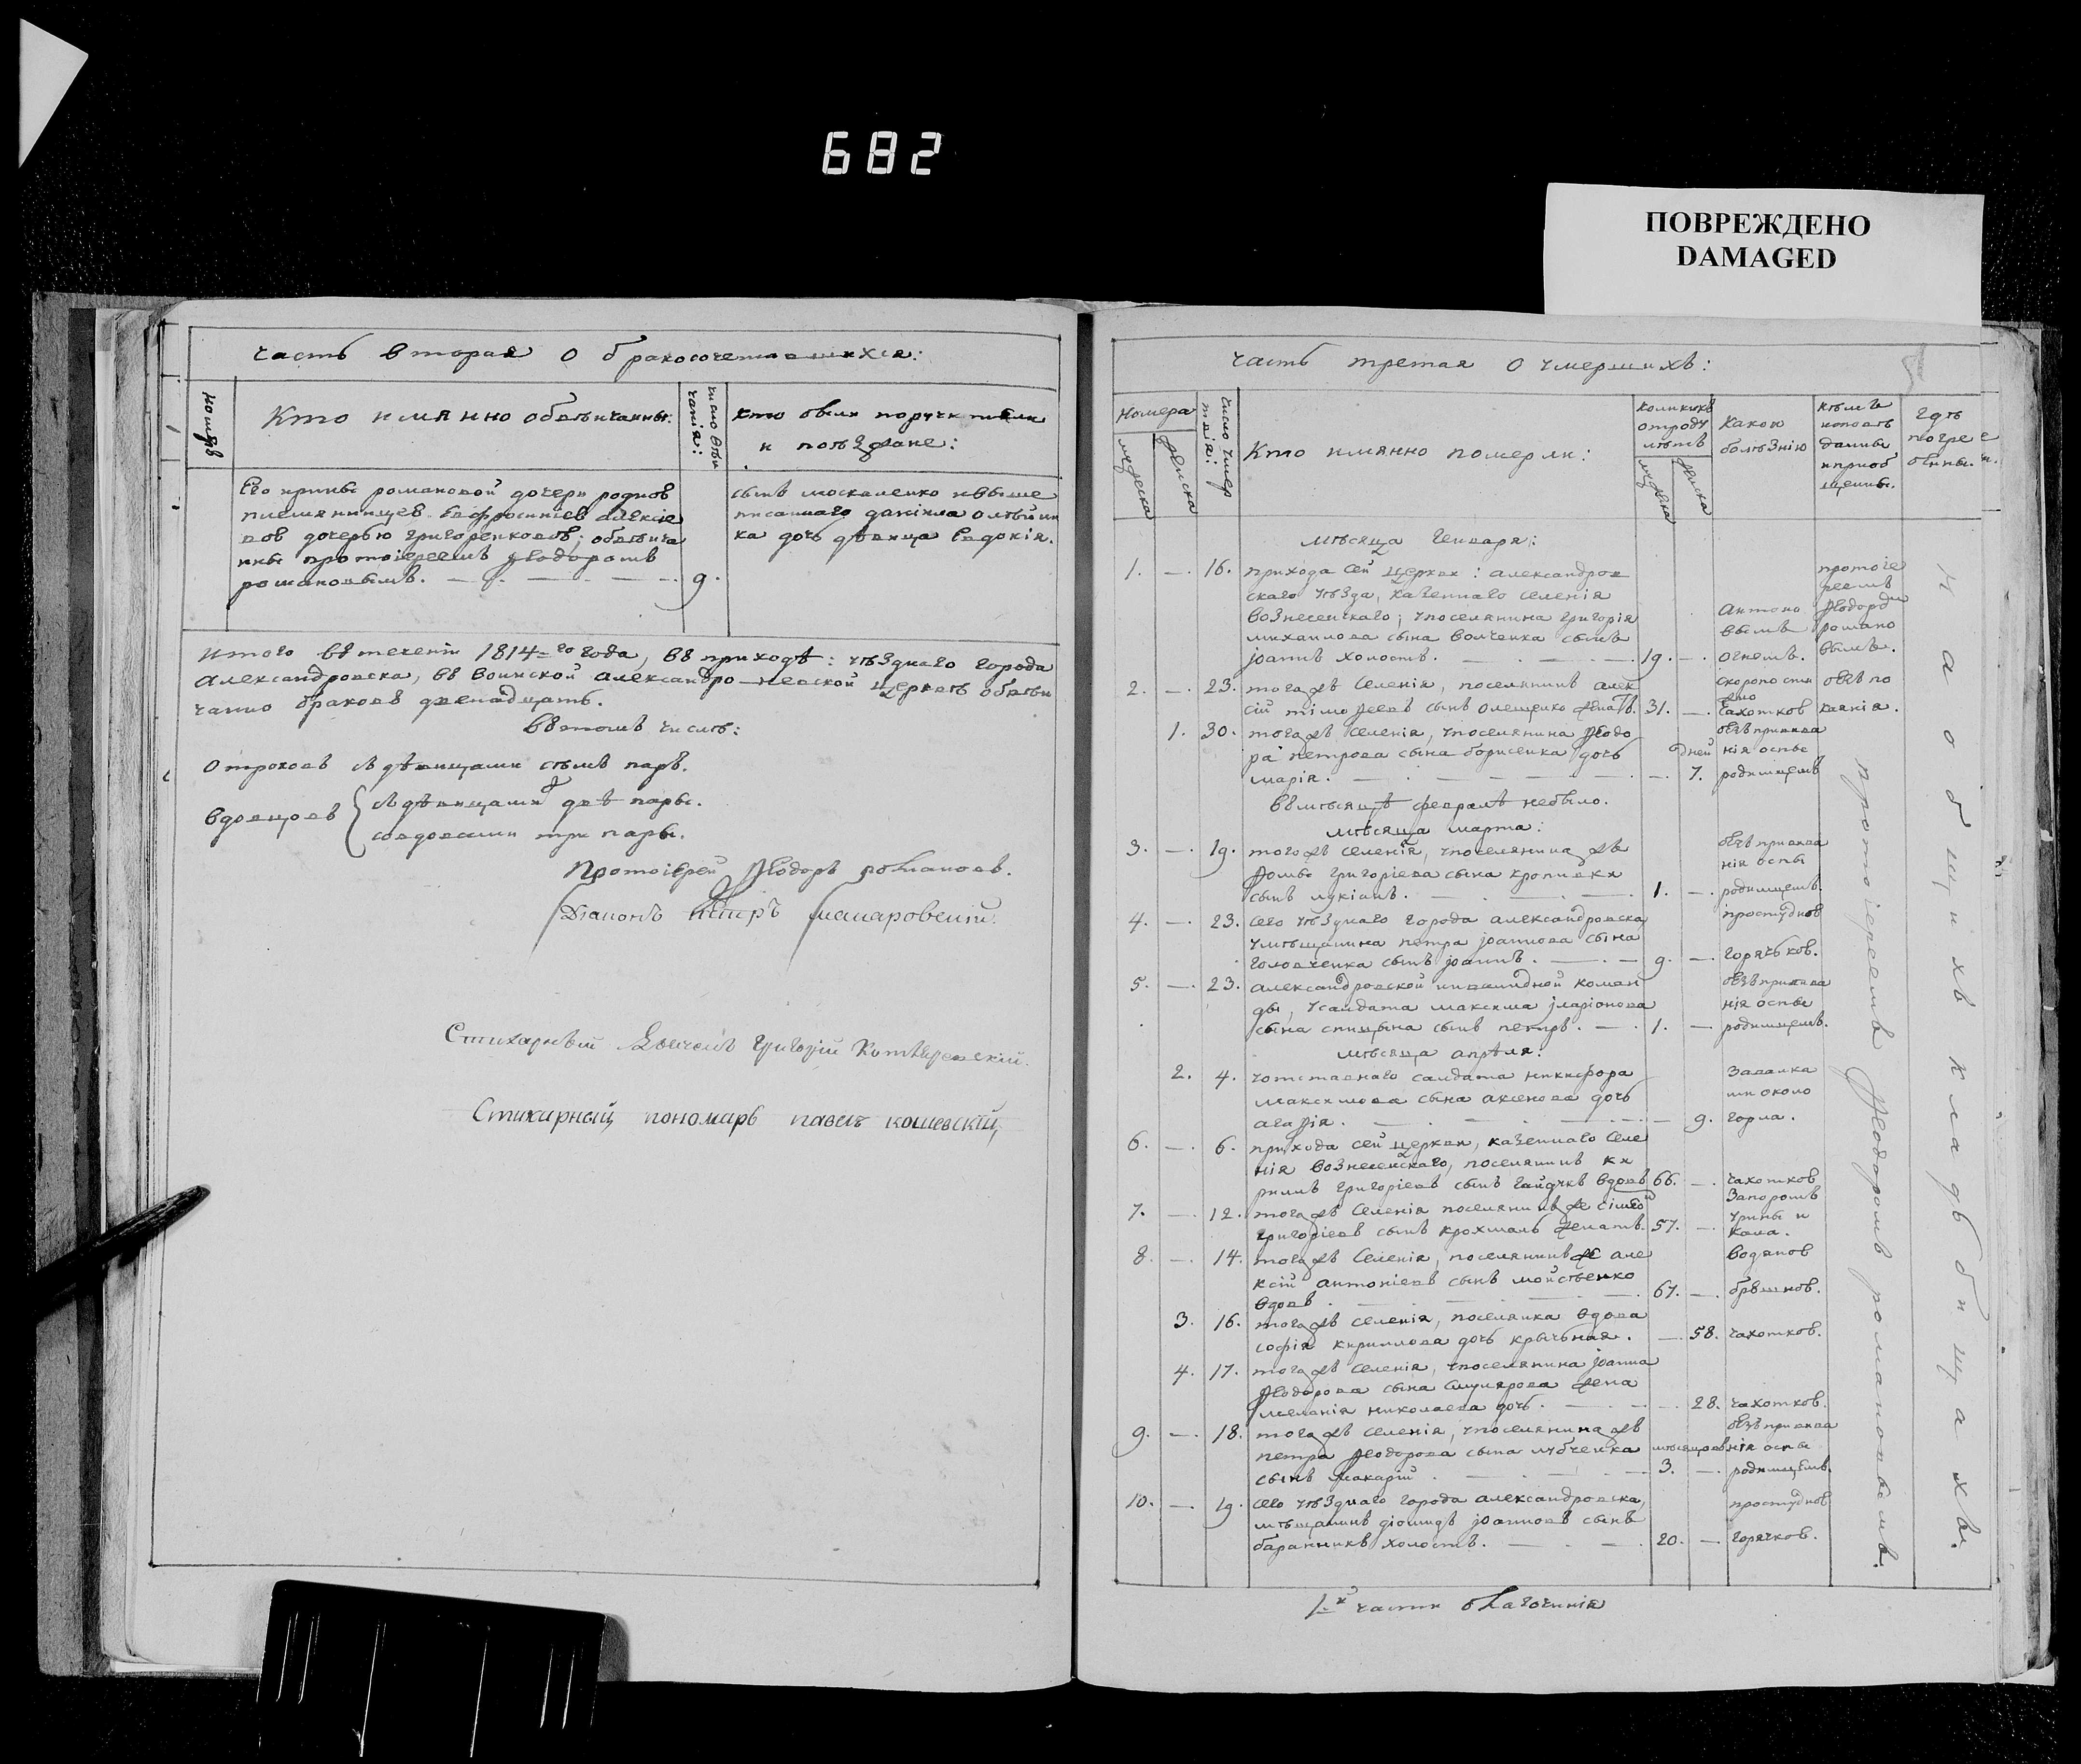 682
ПОВРЕЖДЕНО
DAMAGED
часть вторая о бракосочетавшихся:
Кто имянно обвѣнчаны:
число вѣнчанія:
кто были поручители
и поѣзжане:
Его ирины романовой дочери родной
племянницей Евфросиніей алексіе
вой дочерью григоренковой; обвѣнча
ны протоіереемъ Ѳеодоромъ
романовымъ. 9.
сынъ москаленко и выше
писаннаго даніила олѣйни
ка дочь дѣвица Евдокія.
итого въ теченіи 1814-го года, въ приходѣ: уѣзднаго города
александровска, въ воинской александро-невской церквѣ обвѣн
чанно браковъ двенадцать.
въ томъ числѣ:
отроковъ съ дѣвицами сѣмъ паръ.
вдовцовъ съ дѣвицами двѣ пары.
совдовами три пары.
Протоіерей Ѳеодоръ романовъ.
Діаконъ петръ
Стихарный григорій
Стихарный пономарь павелъ кошевскій,
часть третая о умершихъ:
номера
мужеска
женска
число умертвія:
Кто имянно померли:
коликихъ
отроду
лѣтъ
мужеска
женска
какою
болѣзнію
кѣмъ
исповѣ
даны
и приоб
щены.
гдѣ
погре
бены.
мѣсяца Генваря:
1. — 16. прихода сей церкви: александров
скаго уѣзда, казеннаго селенія
вознесенскаго; у поселянина григорія
михаилова сына волченка сынъ
іоаннъ холостъ. 19. — антоно
вымъ
огнемъ.
протоіе
реемъ
Ѳеодоро
романо
вымъ.
2. — 23. тогажъ селенія, поселянинъ алек
сій тімоѳеевъ сынъ олещенко женатъ. 31. — скоропости
жно
чахоткой
безъ по
каянія.
1. 30. тогажъ селенія, у поселянина Ѳеодо
ра петрова сына борисенка дочь
марія. — дней 7. безъ привива
нія оспы
родимцемъ
въ мѣсяцѣ февралѣ небыло.
мѣсяца марта:
3. — 19. тогожъ селенія, у поселянина жъ
Ѳомы григоріева сына кропивки
сынъ лукіанъ. 1. — безъ привива
нія оспы
родимцемъ.
4. — 23. сего уѣзднаго города александровска
у мѣщанина петра іоаннова сына
головченка сынъ іоаннъ. 9. — простудной
горячкой.
5. — 23. александровской инвалидной коман
ды, у салдата максима іларіонова
сына спицына сынъ петръ. 1. — безъ привива
нія оспы
родимцемъ.
мѣсяца апрѣля:
2. 4. у отставнаго салдата никифора
максимова сына аксенова дочь
агаѳія. — 9. завалка
ми около
горла.
6. — 6. прихода сей церкви, казеннаго селе
нія вознесенскаго, поселянинъ ки
риллъ григоріевъ сынъ гайдукъ вдовъ 66. — чахоткой
7. — 12. тогажъ селенія поселянинъ же сімео
григоріевъ сынъ крохмаль женатъ. 57. — запоромъ
урины и
кала.
8. — 14. тогажъ селенія, поселянинъ же але
ксій антоніевъ сынъ
вдовъ 67. — водяной
9. 
3. 16. тогажъ селенія, поселянка вдова
софія кириллова дочь — 58. чахоткой.
4. 17. тогажъ селенія, у поселянина іоанна
Ѳеодорова сына жена
меланія николаева дочь. 28. чахоткой.
9. — 18. тогажъ селенія, у поселянина жъ
петра Ѳеодорова сына
сынъ макарій мѣсяцовъ 3. — безъ привива
нія оспы
родимцемъ.
10. — 19. сего уѣзднаго города александровска,
мѣщанинъ діомидъ іоанновъ сынъ
баранникъ холостъ. 20. — простудной
горячкой.
протоіереемъ Ѳеодоромъ романовымъ.
на общихъ кладбищахъ.
1-й части благочинія